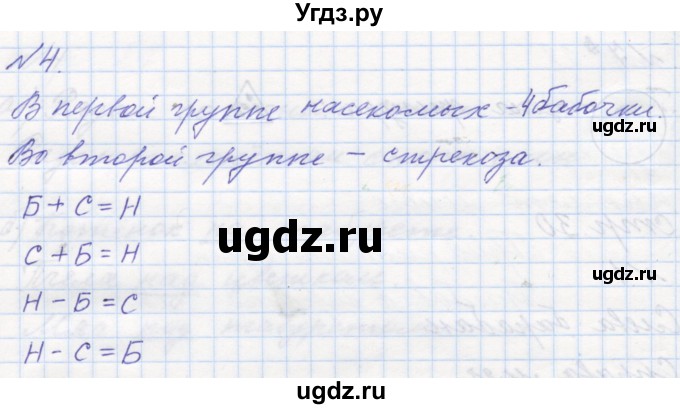 Угдз.ру
№4.
В первой группе насекомых - 4 бабочки.
ugdz.ru
Во второй группе - стрекоза.
Б + С = Н
ugdz.ru
С + Б = Н
ugdz.ru
Н - Б = С
Н - С = Б
ugdz.ru
ugdz.ru